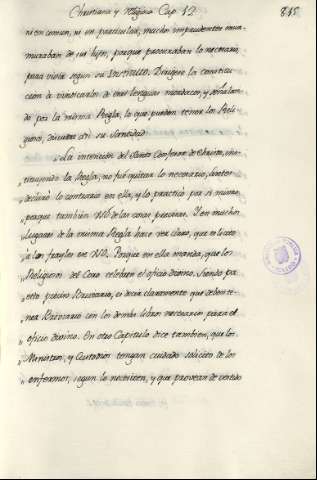 Christiana y Religiosa Cap. 12. 815
ni en comun, ni en particular, mucho imprudentes mur-
muraban de sus hijos, porque procuraban lo necesario
para vivir segun su Instituto. Dirigese la constitu-
cion à vindicarlos de esas lenguas mordaces, y señalan-
do por la misma Regla, lo que pueden tener los Reli-
giosos, discurre asi su Santidad.
„La intencion del Santo Confesor de Christo, ins-
„tituyendo la Regla, no fué quitar lo necesario, antes
„declaró lo contrario en ella, y lo practicó por si mismo
„porque tambien usó de las cosas precisas. Y en muchos
„Lugares de la misma Regla hace ver claro, que es licito
„a los frayles ese uso. Porque en ella manda, que los
„Religiosos del Coro celebren el oficio divino, siendo pa-
„ra esto preciso Breviario, es decir claramente que deben te-
„ner Breviario con los demás libros necesarios para el
„oficio divino. En otro Capitulo dice tambien, que los
„Ministros, y Custodios tengan cuidado solicito de los
„enfermos, segun lo necesiten, y que provean de vestido